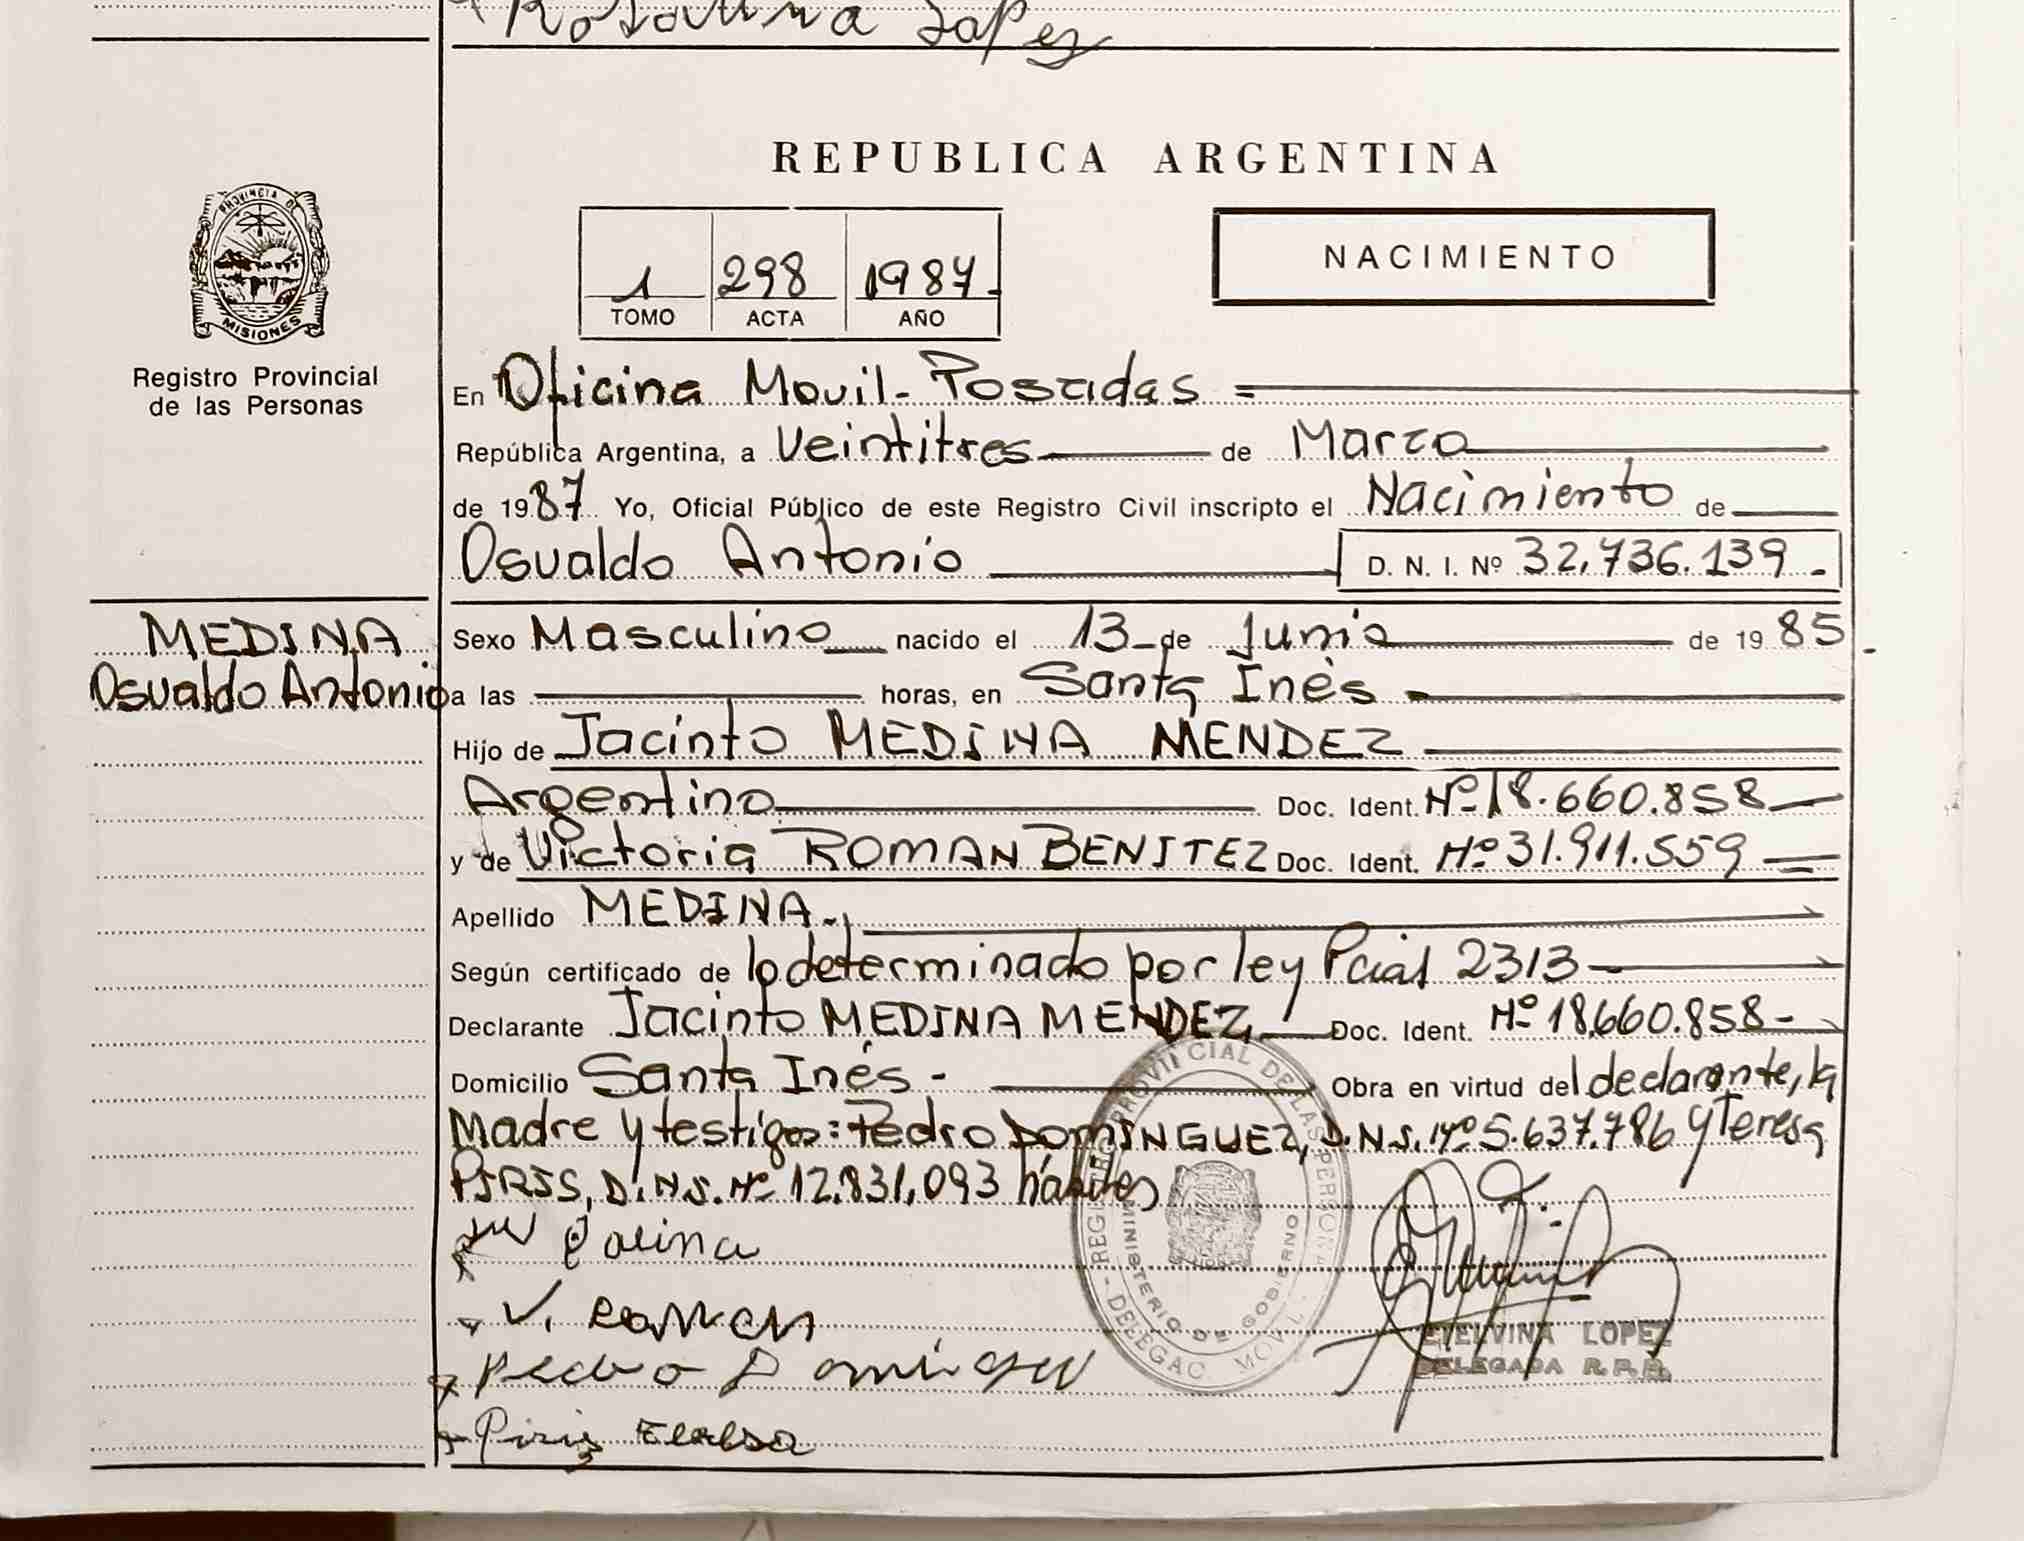 Rosalina Lopez
REPUBLICA ARGENTINA
PROVINCIA D
MISIONES
Registro Provincial
de las Personas
1 298 1987.
TOMO ACTA AÑO
NACIMIENTO
En Oficina Movil - Posadas =
República Argentina, a veintitres de Marzo
de 1987 Yo, Oficial Público de este Registro Civil inscripto el Nacimiento de
Osvaldo Antonio D. N. I. Nº 32.736.139 -
MEDINA
Osvaldo Antonio
Sexo Masculino nacido el 13 - de Junio de 19 85 -
a las horas, en Santa Inés -
Hijo de Jacinto MEDINA MENDEZ
Argentino Doc. Ident. Nº 18.660.858
y de Victoria ROMAN BENITEZ Doc. Ident. Nº 31.911.559
Apellido MEDINA.
Según certificado de lo determinado por ley Pcial 2313
Declarante Jacinto MEDINA MENDEZ, Doc. Ident. Nº 18.660.858 -
Domicilio Santa Inés - Obra en virtud del declarante, la
Madre y testigos: Pedro DOMINGUEZ, D.N.I. Nº 5.637.786 y Teresa
PIRIS, D.N.I. Nº 12.831.093 hábiles
V. Roman
Pedro Domingu
Piris
REGISTRO PROVINCIAL DE LAS PERSONAS
MINISTERIO DE GOBIERNO
DELEGAC MOVIL
ETELVINA LOPEZ
DELEGADA R.P.P.